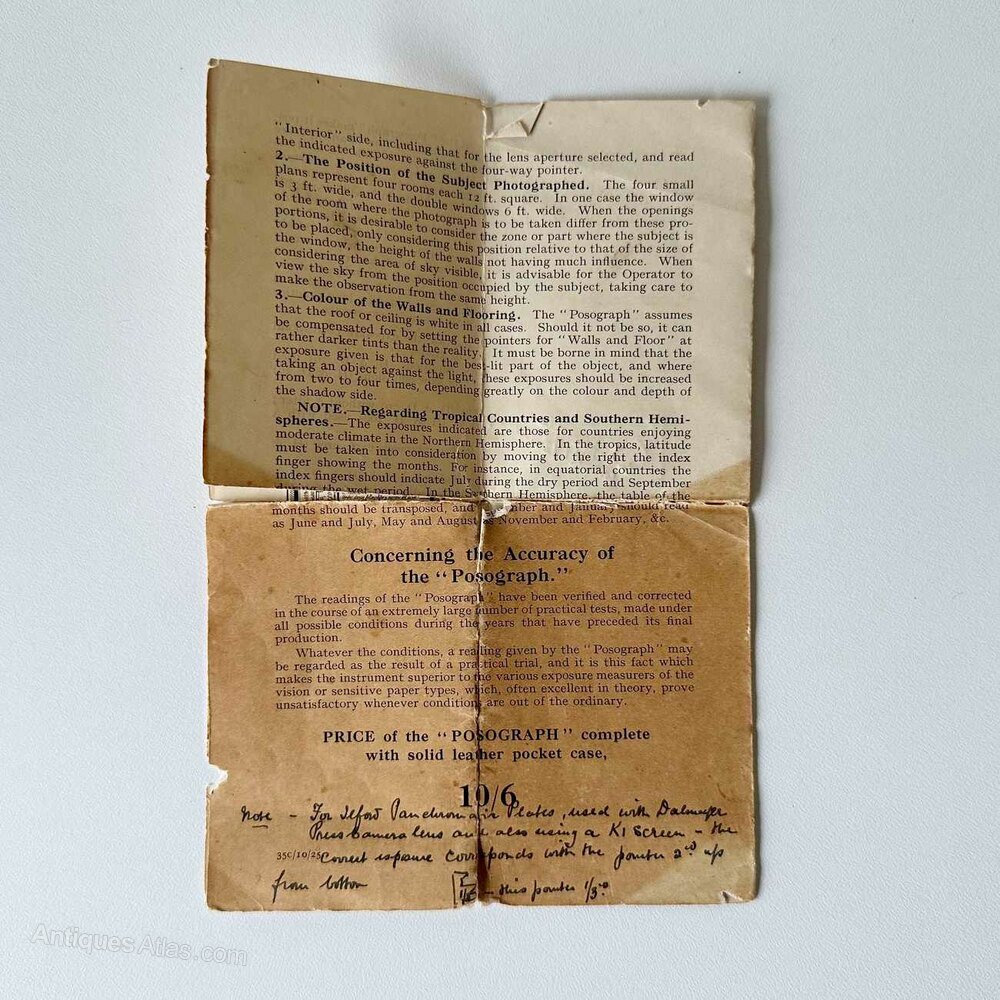 "Interior" side, including that for the lens aperture selected, and read
the indicated exposure against the four-way pointer.
2.—The Position of the Subject Photographed. The four small
plans represent four rooms each 12 ft. square. In one case the window
is 3 ft. wide, and the double windows 6 ft. wide. When the openings
of the room where the photograph is to be taken differ from these pro-
portions, it is desirable to consider the zone or part where the subject is
to be placed, only considering this position relative to that of the size of
the window, the height of the walls not having much influence. When
considering the area of sky visible, it is advisable for the Operator to
view the sky from the position occupied by the subject, taking care to
make the observation from the same height.
3.—Colour of the Walls and Flooring. The "Posograph" assumes
that the roof or ceiling is white in all cases. Should it not be so, it can
be compensated for by setting the pointers for "Walls and Floor" at
rather darker tints than the reality. It must be borne in mind that the
exposure given is that for the best-lit part of the object, and where
taking an object against the light, these exposures should be increased
from two to four times, depending greatly on the colour and depth of
the shadow side.
NOTE.—Regarding Tropical Countries and Southern Hemi-
spheres.—The exposures indicated are those for countries enjoying
moderate climate in the Northern Hemisphere. In the tropics, latitude
must be taken into consideration by moving to the right the index
finger showing the months. For instance, in equatorial countries the
index fingers should indicate July during the dry period and September
during the wet period. In the Southern Hemisphere, the table of the
months should be transposed, and December and January should read
as June and July, May and August as November and February, &c.
Concerning the Accuracy of
the "Posograph."
The readings of the "Posograph" have been verified and corrected
in the course of an extremely large number of practical tests, made under
all possible conditions during the years that have preceded its final
production.
Whatever the conditions, a reading given by the "Posograph" may
be regarded as the result of a practical trial, and it is this fact which
makes the instrument superior to the various exposure measurers of the
vision or sensitive paper types, which, often excellent in theory, prove
unsatisfactory whenever conditions are out of the ordinary.
PRICE of the "POSOGRAPH" complete
with solid leather pocket case,
10/6
Note - For Ilford Panchromatic Plates, used with Dalmeyer
Press Camera lens and also using a K1 Screen - the
35C/10/25 Correct exposure corresponds with the pointer 2nd up
from bottom this pointer 1/3rd
AntiquesAtlas.com